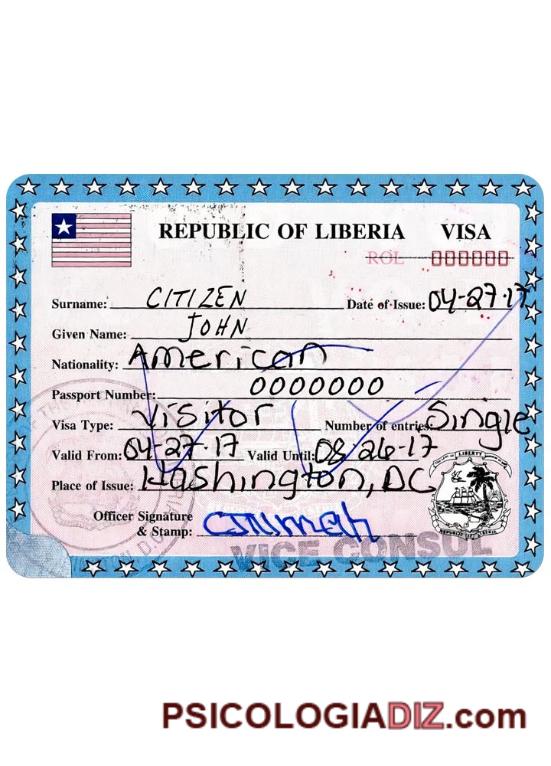 REPUBLIC OF LIBERIA VISA
ROL 000000
Surname: CITIZEN Date of Issue: 04-27-17
Given Name: JOHN
Nationality: American
Passport Number: 0000000
Visa Type: Visitor Number of entries: Single
Valid From: 04-27-17 Valid Until: 08 26-17
Place of Issue: Washington, DC
Officer Signature
& Stamp:
VICE CONSUL
LIBERTY
REPUBLIC OF LIBERIA
PSICOLOGIADIZ.com